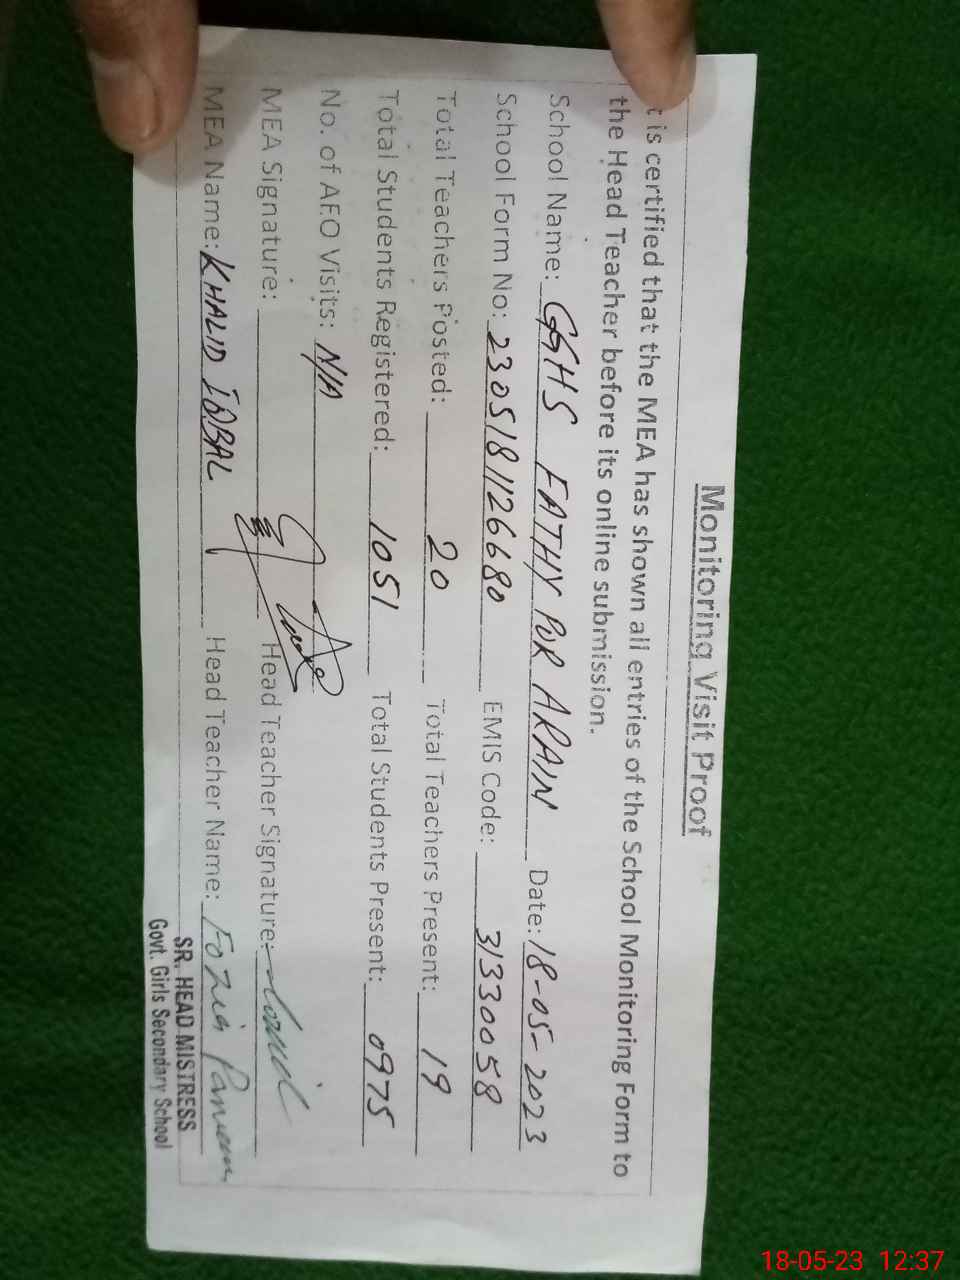 Monitoring Visit Proof
t is certified that the MEA has shown all entries of the School Monitoring Form to
the Head Teacher before its online submission.
School Name: GGHS FATHY PUR ARAIN Date: 18-05-2023
School Form No: 2305181126680 EMIS Code: 31330058
Total Teachers Posted: 20 Total Teachers Present: 19
Total Students Registered: 1051 Total Students Present: 0975
No. of AEO Visits: N/A
MEA Signature: Head Teacher Signature:
MEA Name: KHALID IQBAL Head Teacher Name: Fozia Parveen
SR. HEAD MISTRESS
Govt. Girls Secondary School
18-05-23 12:37